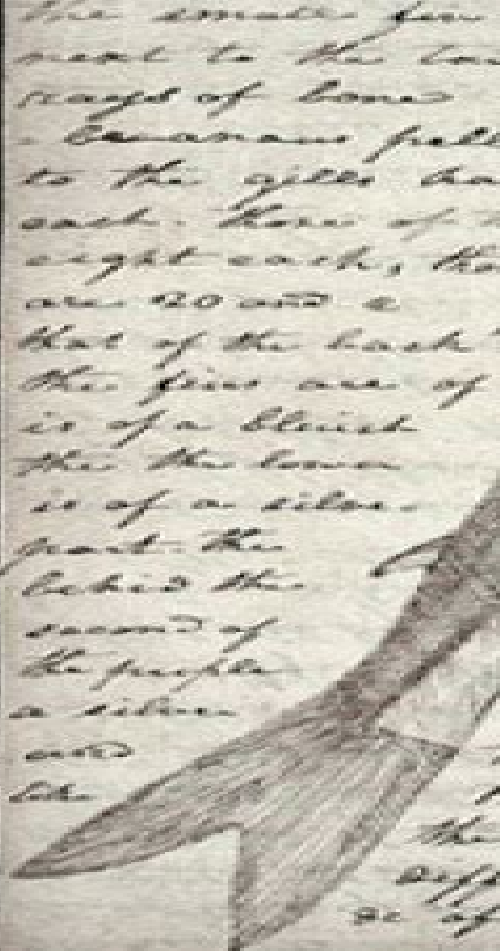 the small fin
next to the
rays of bone
to the gills
each. those of
eight each, the
are 20 and 2
that of the back
the fins are of
is of a bluish
the the lower
is of a silve
part. the
behind the
second of
the people
a silver
and
like
the
of